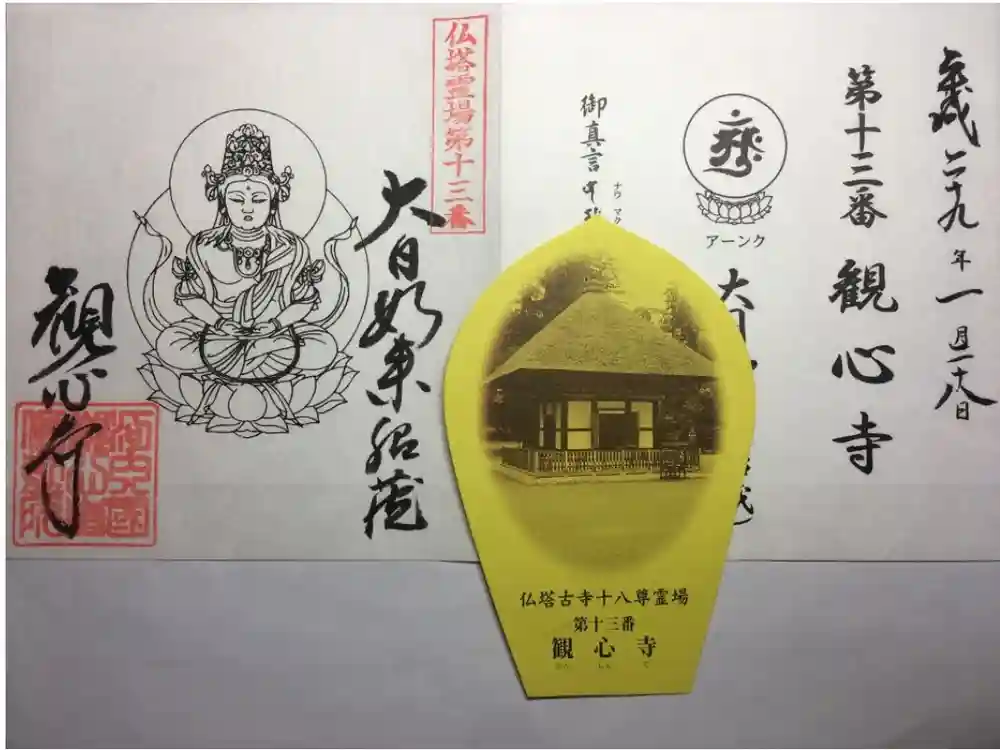 平成二十九年一月二十八日
第十三番 観心寺
アーンク
大日
御真言
ナウマク
仏塔霊場第十三番
大日如来秘蔵
観心寺
仏塔古寺十八尊霊場
第十三番
観心寺
かんしんじ